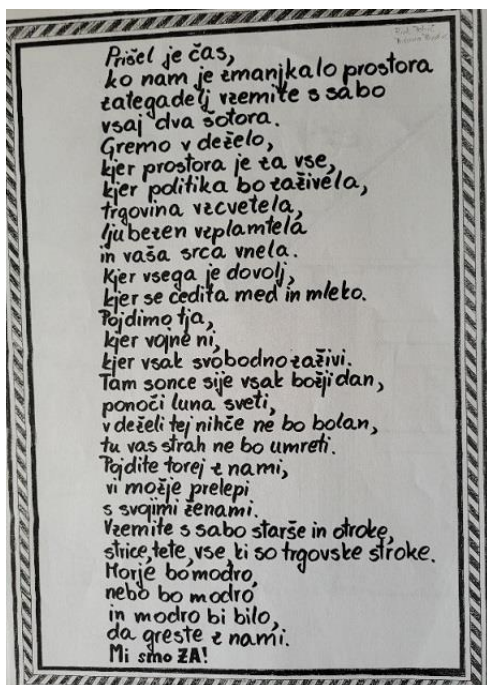 Prišel je čas,
ko nam je zmanjkalo prostora
zategadelj vzemite s sabo
vsaj dva šotora.
Gremo v deželo,
kjer prostora je za vse,
kjer politika bo zaživela,
trgovina vzcvetela,
ljubezen vzplamtela
in vaša srca vnela.
Kjer vsega je dovolj,
kjer se cedita med in mleko.
Pojdimo tja,
kjer vojne ni,
kjer vsak svobodno zaživi.
Tam sonce sije vsak božji dan,
ponoči luna sveti,
v deželi tej nihče ne bo bolan,
tu vas strah ne bo umreti.
Pojdite torej z nami,
vi možje prelepi
s svojimi ženami.
Vzemite s sabo starše in otroke,
strice, tete, vse ki so trgovske stroke.
Morje bo modro,
nebo bo modro
in modro bi bilo,
da greste z nami.
Mi smo ZA!